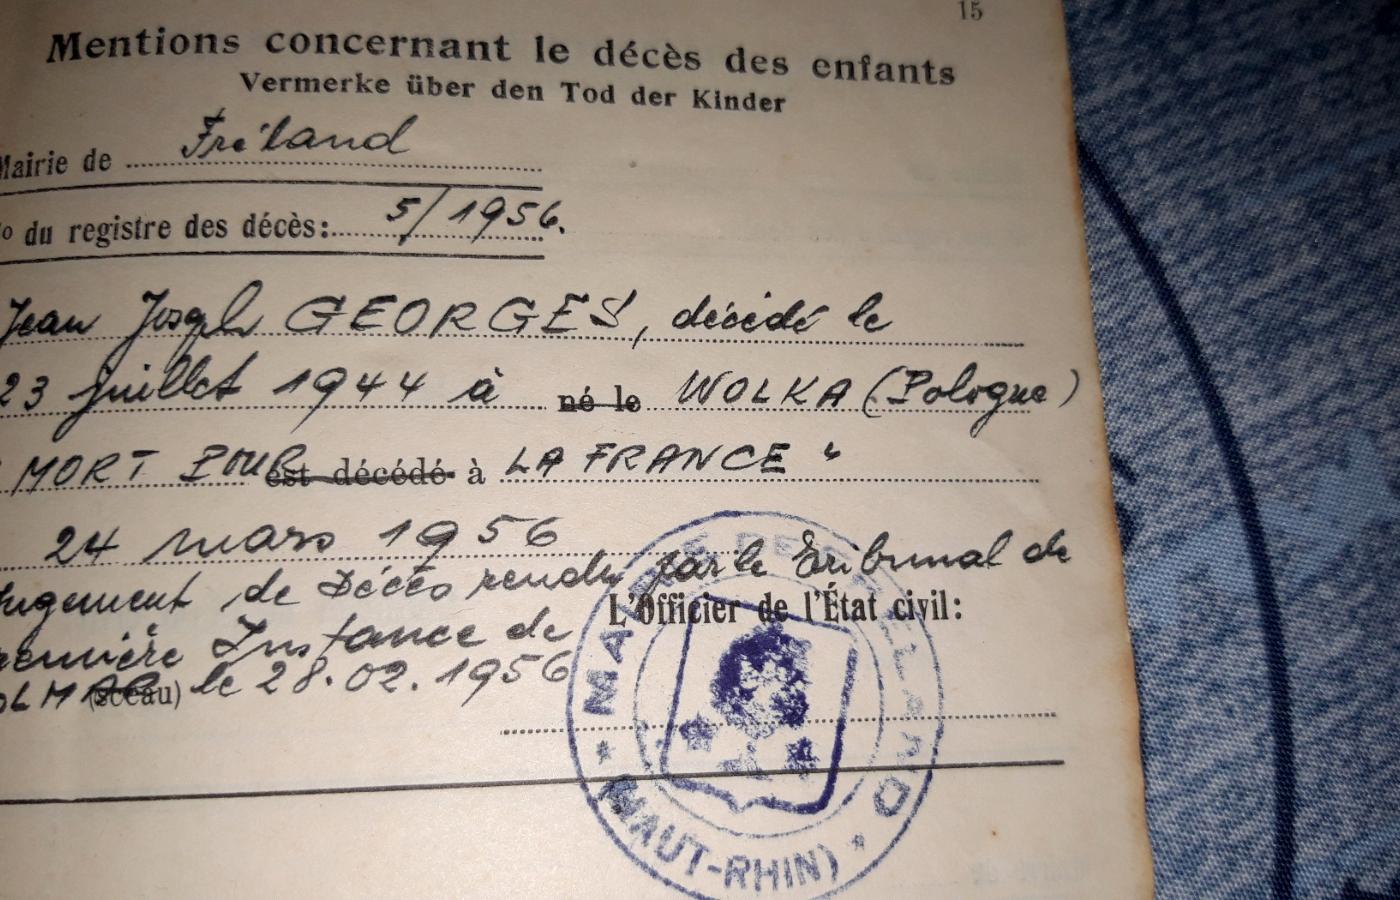 15
Mentions concernant le décès des enfants
Vermerke über den Tod der Kinder
Mairie de Fréland
No du registre des décès: 5/1956.
Jean Joseph GEORGES, décédé le
23 juillet 1944 à né le WOLKA (Pologne)
" MORT POUR est décédé à LA FRANCE "
24 mars 1956
Jugement de Décès rendu par le Tribunal de
L'Officier de l'État civil:
Première Instance de
COLMAR (sceau) le 28.02.1956
MAIRIE DE FRELAND
(HAUT-RHIN)